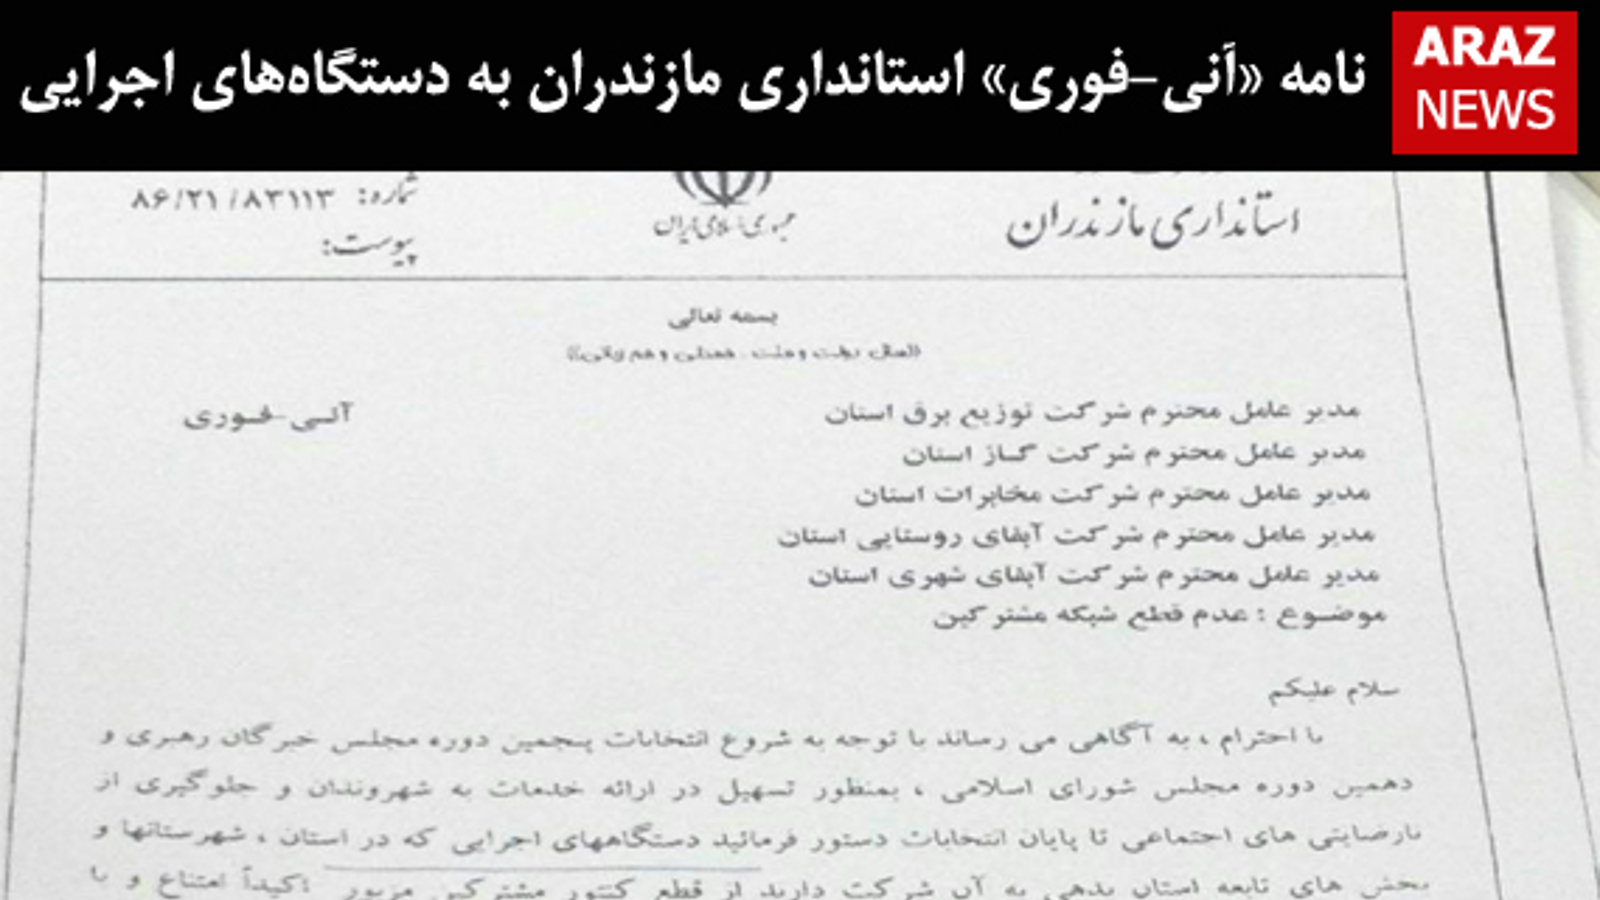 نامه «آنی-فوری» استانداری مازندران به دستگاه‌های اجرایی
ARAZ
NEWS
استانداری مازندران
جمهوری اسلامی ایران
شماره: ۸۶/۲۱/۸۳۱۱۳
پیوست:
بسمه تعالی
«سال دولت و ملت، همدلی و هم زبانی»
آنی-فوری
مدیر عامل محترم شرکت توزیع برق استان
مدیر عامل محترم شرکت گاز استان
مدیر عامل محترم شرکت مخابرات استان
مدیر عامل محترم شرکت آبفای روستایی استان
مدیر عامل محترم شرکت آبفای شهری استان
موضوع : عدم قطع شبکه مشترکین
سلام علیکم
با احترام ، به آگاهی می رساند با توجه به شروع انتخابات پنجمین دوره مجلس خبرگان رهبری و
دهمین دوره مجلس شورای اسلامی ، بمنظور تسهیل در ارائه خدمات به شهروندان و جلوگیری از
نارضایتی های اجتماعی تا پایان انتخابات دستور فرمائید دستگاههای اجرایی که در استان ، شهرستانها و
بخش های تابعه استان بدهی به آن شرکت دارند از قطع کنتور مشترکین مزبور اکیداً امتناع و با